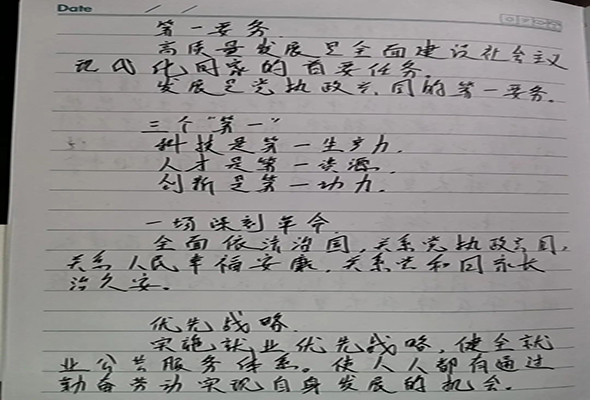 Date / /
第一要务
高质量发展是全面建设社会主义
现代化国家的首要任务。
发展是党执政兴国的第一要务。
三个"第一"
科技是第一生产力.
人才是第一资源.
创新是第一动力.
一场深刻革命
全面依法治国,关系党执政兴国,
关系人民幸福安康,关系党和国家长
治久安。
优先战略.
实施就业优先战略,健全就
业公共服务体系。使人人都有通过
勤奋劳动实现自身发展的机会。